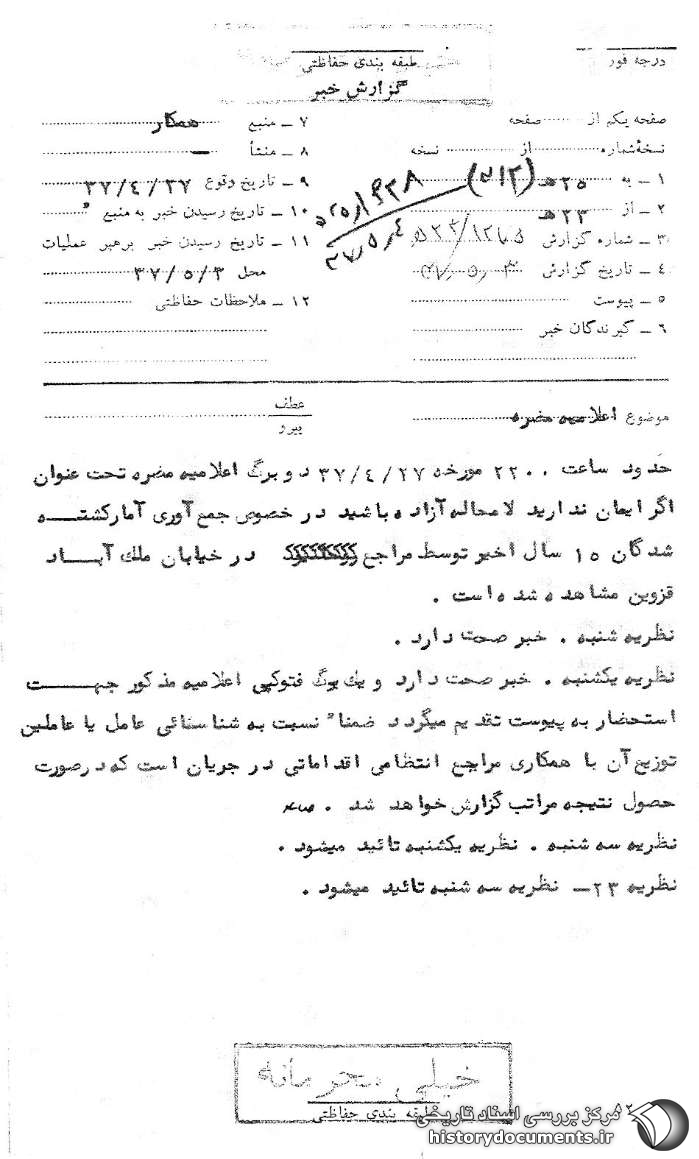 درجه فور
طبقه بندی حفاظتی
گزارش خبر
صفحه یکم از صفحه
نسخهٔ شماره از نسخه
۱ ـ به ۲۵ هـ
۲ ـ از ۲۳ هـ
۳ ـ شماره گزارش
۴ ـ تاریخ گزارش
۵ ـ پیوست
۶ ـ گیرندگان خبر
۷ ـ منبع همکار
۸ ـ منشأ ـ
۹ ـ تاریخ وقوع ۳۷/۴/۲۷
۱۰ ـ تاریخ رسیدن خبر به منبع
۱۱ ـ تاریخ رسیدن خبر برهبر عملیات
محل ۳۷/۵/۳
۱۲ ـ ملاحظات حفاظتی
موضوع اعلامیه مضره
عطف
پیرو
حدود ساعت ۲۲۰۰ مورخه ۳۷/۴/۲۷ دو برگ اعلامیه مضره تحت عنوان
اگر ایمان ندارید لامحاله آزاده باشید در خصوص جمع آوری آمار کشتـــه
شدگان ۱۵ سال اخیر توسط مراجع در خیابان ملك آبـــاد
قزوین مشاهده شده است .
نظریه شنبه . خبر صحت دارد .
نظریه یکشنبه . خبر صحت دارد و یك برگ فتوکپی اعلامیه مذکور جهـــت
استحضار به پیوست تقدیم میگردد ضمناً نسبت به شناسائی عامل یا عاملین
توزیع آن با همکاری مراجع انتظامی اقداماتی در جریان است که درصورت
حصول نتیجه مراتب گزارش خواهد شد .
نظریه سه شنبه . نظریه یکشنبه تائید میشود .
نظریه ۲۳ـ نظریه سه شنبه تائید میشود .
خیلی محرمانه
طبقه بندی حفاظتی
مرکز بررسی اسناد تاریخی
historydocuments.ir